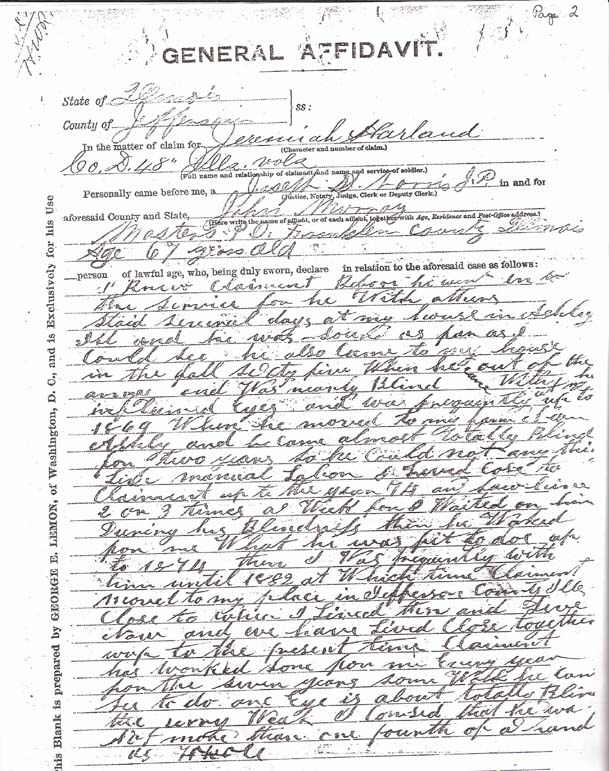 Page 2
GENERAL AFFIDAVIT.
State of Illinois
ss:
County of Jefferson
In the matter of claim for Jeremiah Harland
(Character and number of claim.)
Co. D. 48" Ills. vols
(Full name and relationship of claimant and name and service of soldier.)
Personally came before me, a Joseph D. Norris J.P. in and for
(Justice, Notary, Judge, Clerk or Deputy Clerk.)
aforesaid County and State, John Murray
(Here write the name of affiant, or of each affiant, together with Age, Residence and Post-office address.)
Masters P.O. Franklin County Illinois
Age 67 years old
person of lawful age, who, being duly sworn, declare in relation to the aforesaid case as follows:
I Knew Claiment Before he went in to
the Service for he With others
staid several days at my house in Ashley
Ill and he was sound as far as I
Could see he also Came to my house
in the fall sixty five When he out of the
army and Was nearly Blind With
inflamed Eyes and was frequently up to
1869 When he moved to my farm
Ashly and be came almost totally Blind
for two years so he Could not any thing
like manual Labor I Lived Close to
Claiment up to the year 74 and saw him
2 or 3 times a Week for I Waited on him
During his Blindness then he Worked
for me What he was fit to doe up
to 1874 then I Was frequently with
him until 1882 at Which time Claiment
moved to my place in Jefferson County Ills
Close to where I Lived then and Live
Now and we have Lived Close together
wup to the present time Claiment
has worked some for me Every year
for the seven years some While he Can
See to do one Eye is about totally Blind
the Weak I Consid that he wa
Not more than one fourth of a hand
as Whole
This Blank is prepared by GEORGE E. LEMON, of Washington, D. C., and is Exclusively for his Use